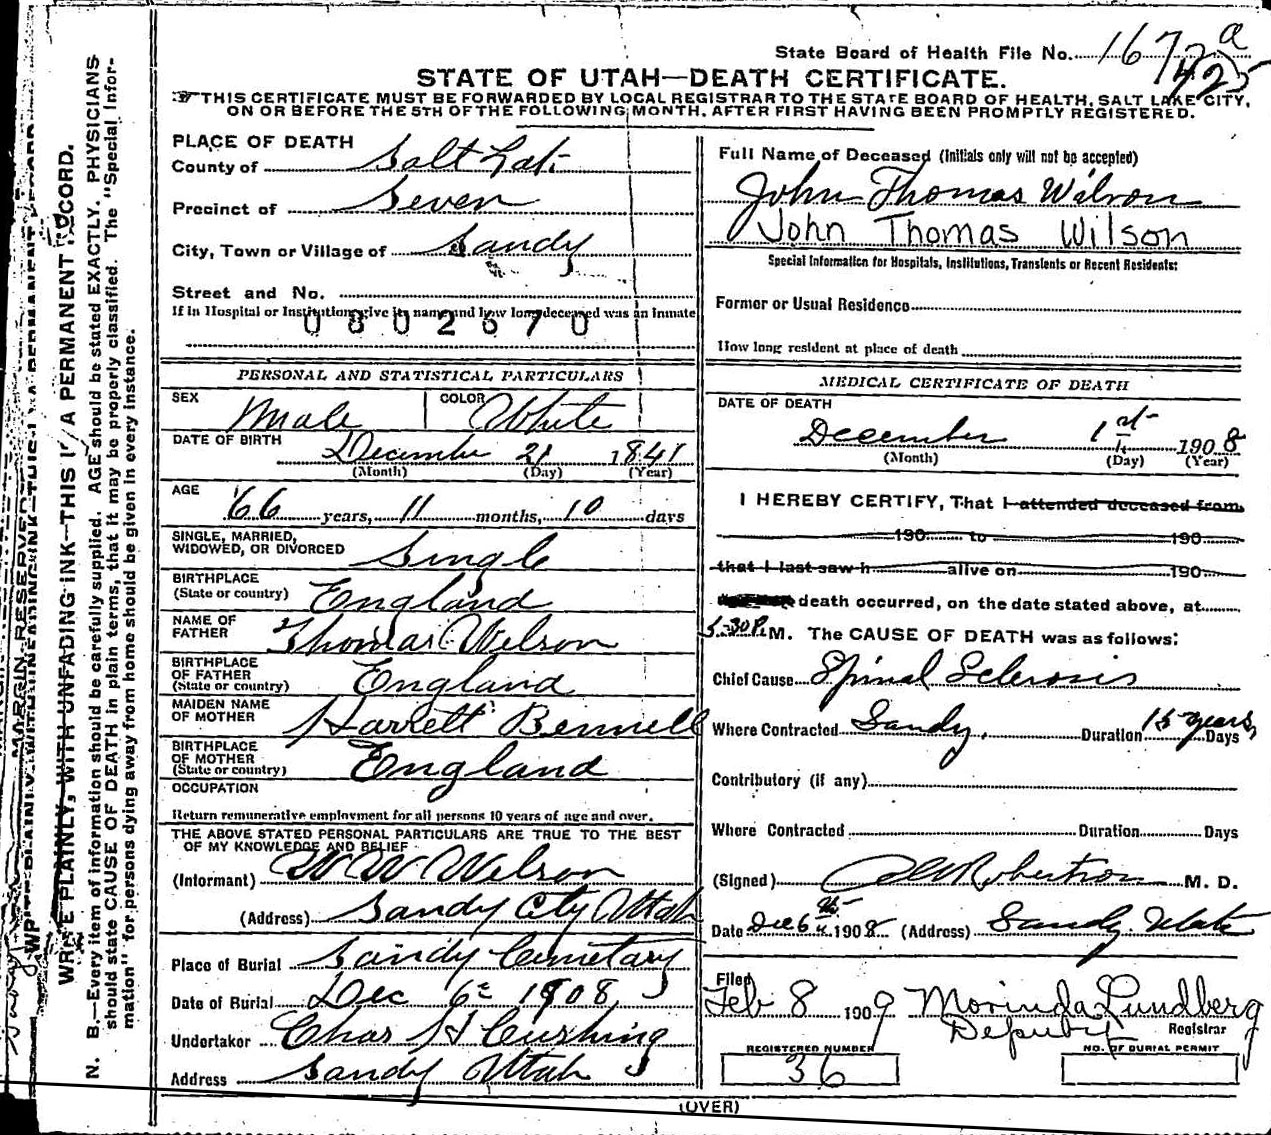 State Board of Health File No. 1672 a
425
STATE OF UTAH—DEATH CERTIFICATE.
THIS CERTIFICATE MUST BE FORWARDED BY LOCAL REGISTRAR TO THE STATE BOARD OF HEALTH, SALT LAKE CITY,
ON OR BEFORE THE 5TH OF THE FOLLOWING MONTH, AFTER FIRST HAVING BEEN PROMPTLY REGISTERED.
PLACE OF DEATH
County of Salt Lake
Precinct of Seven
City, Town or Village of Sandy
Street and No.
If in Hospital or Institution give its name and how long deceased was an inmate
0802670
PERSONAL AND STATISTICAL PARTICULARS
SEX Male COLOR White
DATE OF BIRTH December 21 1841
(Month) (Day) (Year)
AGE 66 years, 11 months, 10 days
SINGLE, MARRIED,
WIDOWED, OR DIVORCED Single
BIRTHPLACE
(State or country) England
NAME OF
FATHER Thomas Wilson
BIRTHPLACE
OF FATHER
(State or country) England
MAIDEN NAME
OF MOTHER Harrett Bennell
BIRTHPLACE
OF MOTHER
(State or country) England
OCCUPATION
Return remunerative employment for all persons 10 years of age and over.
THE ABOVE STATED PERSONAL PARTICULARS ARE TRUE TO THE BEST
OF MY KNOWLEDGE AND BELIEF
(Informant) W W Wilson
(Address) Sandy City Utah
Place of Burial Sandy Cemetary
Date of Burial Dec 6 1908
Undertaker Chas H Cushing
Address Sandy Utah
Full Name of Deceased (Initials only will not be accepted)
John Thomas Wilson
John Thomas Wilson
Special Information for Hospitals, Institutions, Transients or Recent Residents:
Former or Usual Residence
How long resident at place of death
MEDICAL CERTIFICATE OF DEATH
DATE OF DEATH
December 1st 1908
(Month) (Day) (Year)
I HEREBY CERTIFY, That I attended deceased from
190 to 190
that I last saw h alive on 190
death occurred, on the date stated above, at
5-30 P. M. The CAUSE OF DEATH was as follows:
Chief Cause Spinal Sclerosis
Where Contracted Sandy, Duration 15 years Days
Contributory (if any)
Where Contracted Duration Days
(Signed) Robertson M. D.
Date Dec 6th 1908 (Address) Sandy Utah
Filed
Feb 8 1909 Morinda Lundberg
Deputy Registrar
REGISTERED NUMBER
36
NO. OF BURIAL PERMIT
(OVER)
WRITE PLAINLY, WITH UNFADING INK—THIS IS A PERMANENT RECORD.
N. B.—Every item of information should be carefully supplied. AGE should be stated EXACTLY. PHYSICIANS
should state CAUSE OF DEATH in plain terms, that it may be properly classified. The "Special Infor-
mation" for persons dying away from home should be given in every instance.
MARGIN RESERVED